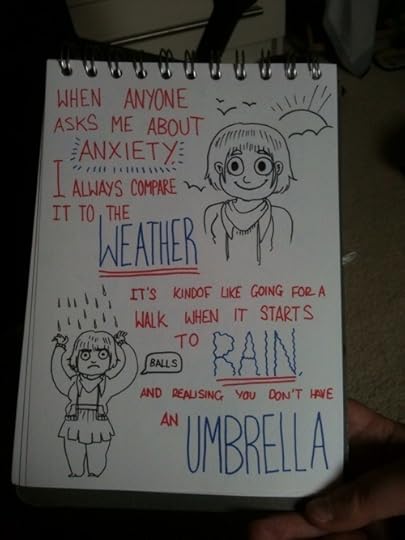 WHEN ANYONE
ASKS ME ABOUT
ANXIETY
I ALWAYS COMPARE
IT TO THE
WEATHER
IT'S KINDOF LIKE GOING FOR A
WALK WHEN IT STARTS
TO RAIN,
BALLS
AND REALISING YOU DON'T HAVE
AN UMBRELLA